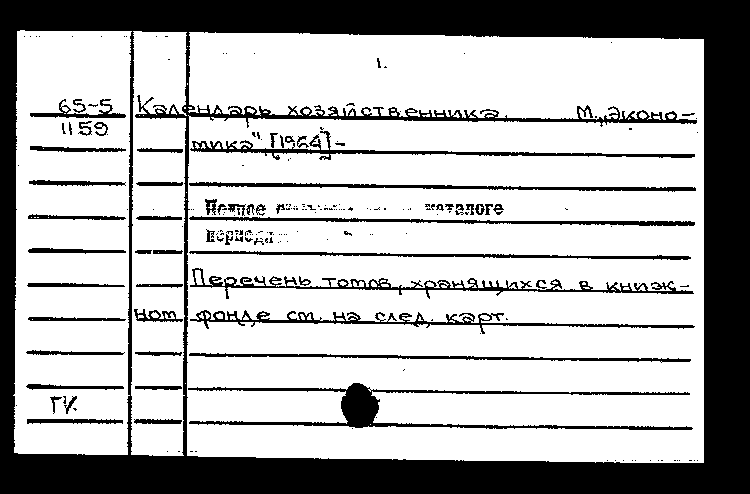 1.
65-5 Календарь хозяйственника. М., „Эконо-
1159 мика" [1964] -
Полное каталоге
Перечень томов, хранящихся в книж-
ном фонде см. на след. карт.
ГК